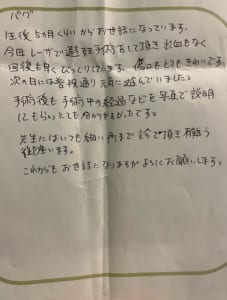 パグ
生後5カ月くらいからお世話になっています。
今回レーザで避妊手術をして頂き出血もなく
回復も早くびっくりしています。傷口もとてもきれいです。
次の日には普段通り元気に遊んでいました。
手術後も手術中の経過などを写真で説明
してもらい、とても分かりやすかったです。
先生にはいつも細い所まで診て頂き有難う
御座います。
これからもお世話になりますがよろしくお願いします。